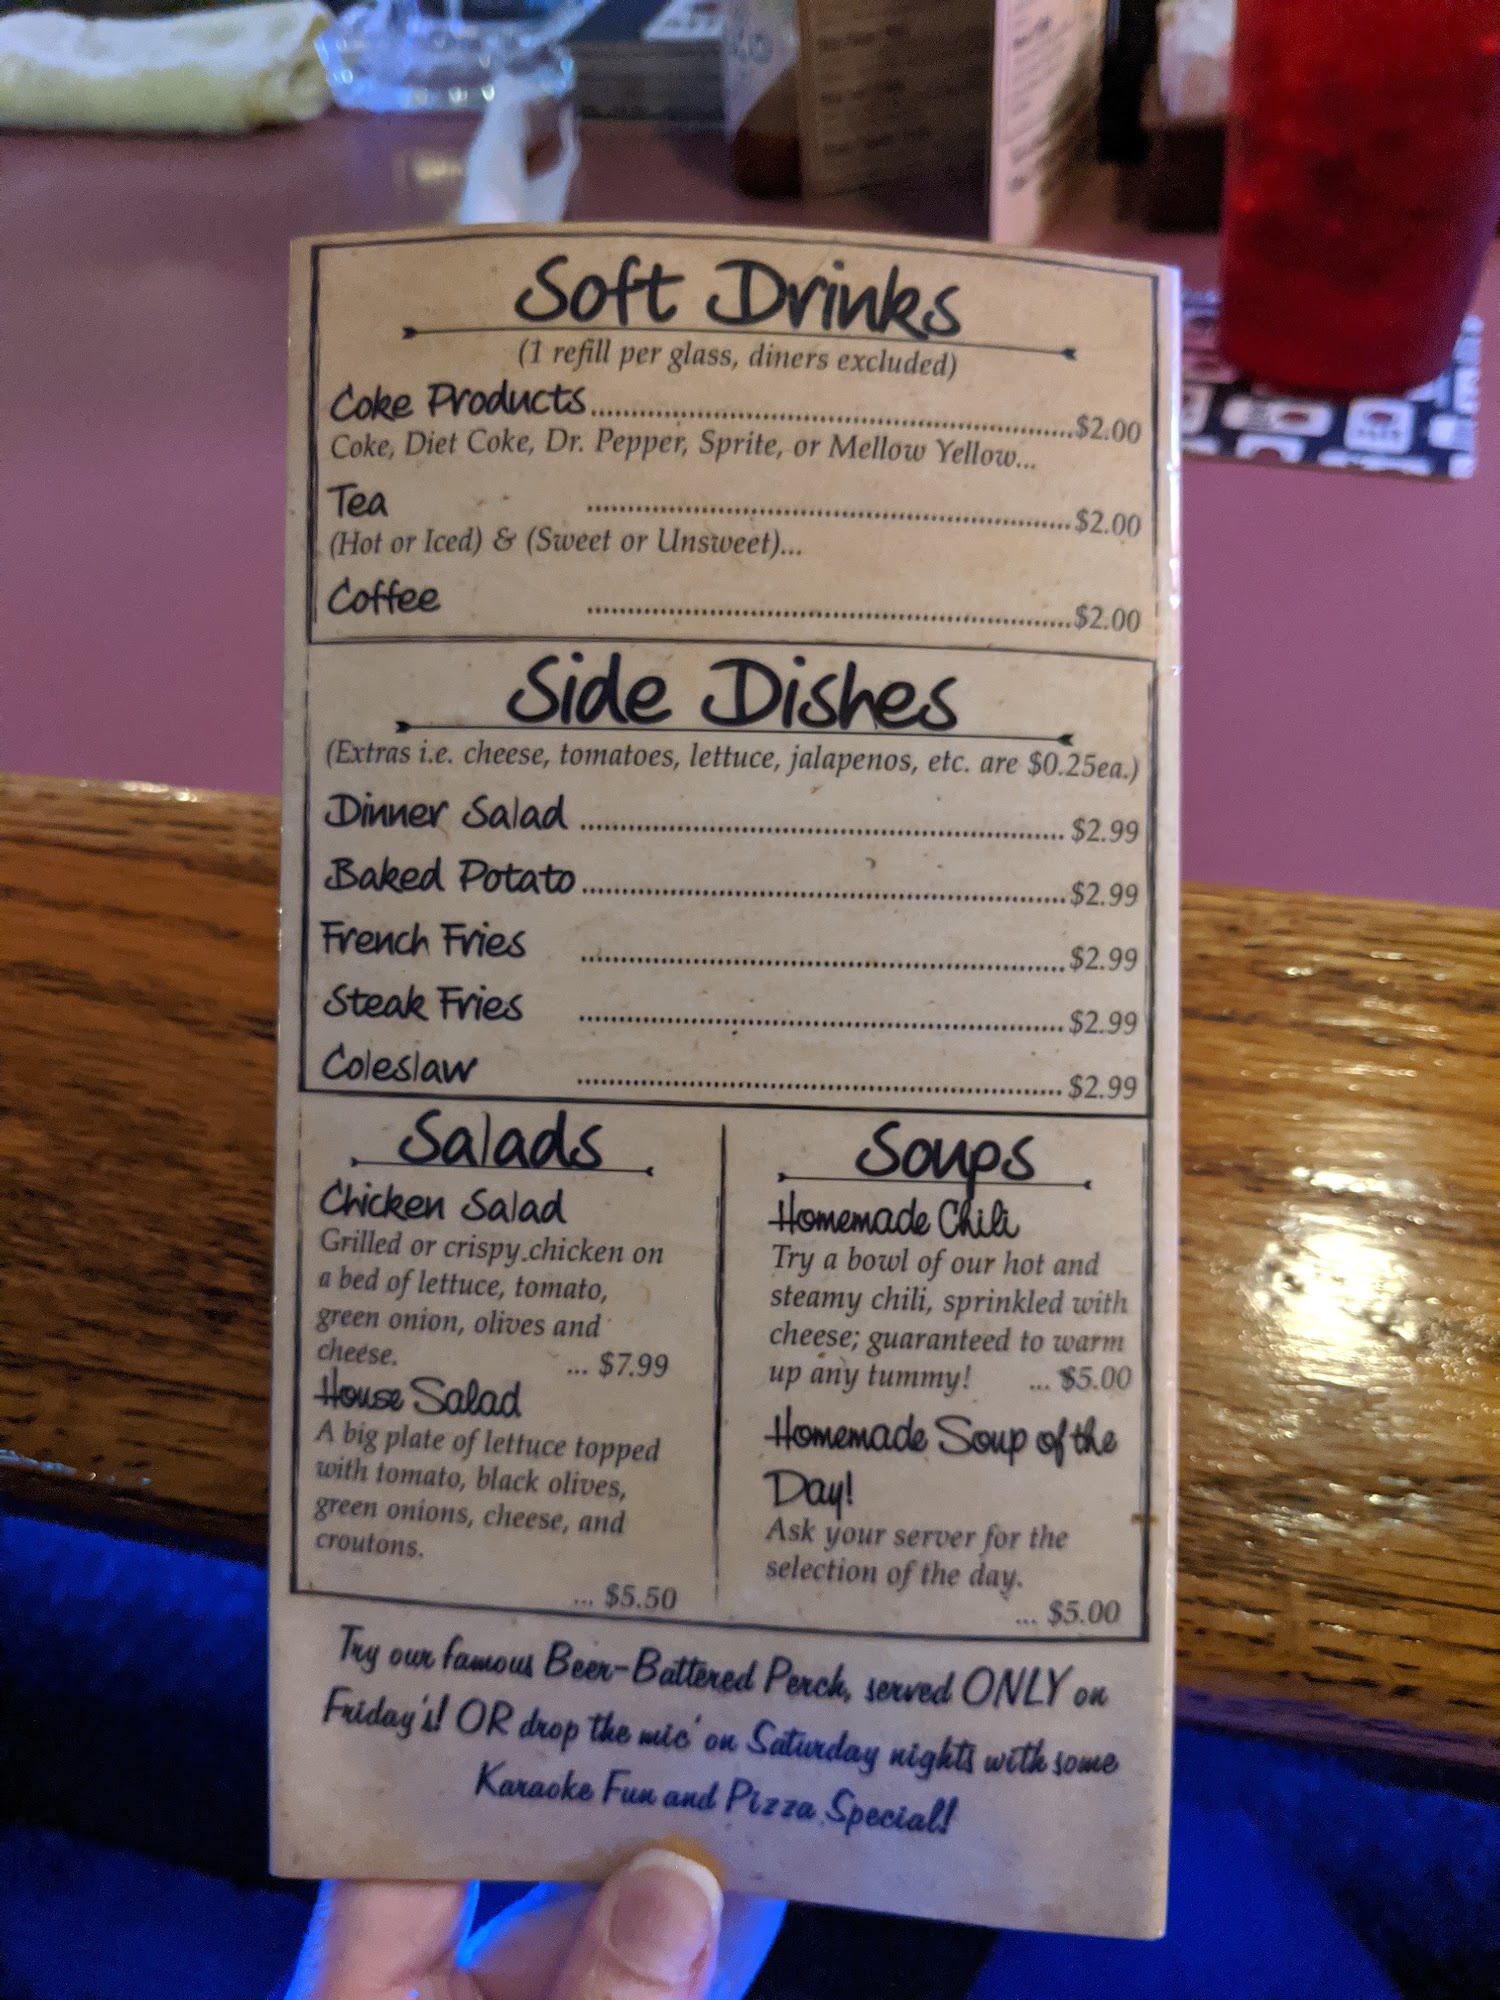 Soft Drinks
(1 refill per glass, diners excluded)
Coke Products..........$2.00
Coke, Diet Coke, Dr. Pepper, Sprite, or Mellow Yellow...
Tea ..........$2.00
(Hot or Iced) & (Sweet or Unsweet)...
Coffee ..........$2.00
Side Dishes
(Extras i.e. cheese, tomatoes, lettuce, jalapenos, etc. are $0.25ea.)
Dinner Salad .......... $2.99
Baked Potato..........$2.99
French Fries ..........$2.99
Steak Fries ..........$2.99
Coleslaw .......... $2.99
Salads
Chicken Salad
Grilled or crispy chicken on
a bed of lettuce, tomato,
green onion, olives and
cheese. ... $7.99
House Salad
A big plate of lettuce topped
with tomato, black olives,
green onions, cheese, and
croutons.
... $5.50
Soups
Homemade Chili
Try a bowl of our hot and
steamy chili, sprinkled with
cheese; guaranteed to warm
up any tummy! ... $5.00
Homemade Soup of the
Day!
Ask your server for the
selection of the day.
... $5.00
Try our famous Beer-Battered Perch, served ONLY on
Friday's! OR drop the mic' on Saturday nights with some
Karaoke Fun and Pizza Special!